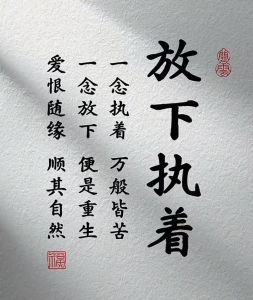 放下执着
一念执着 万般皆苦
一念放下 便是重生
爱恨随缘 顺其自然